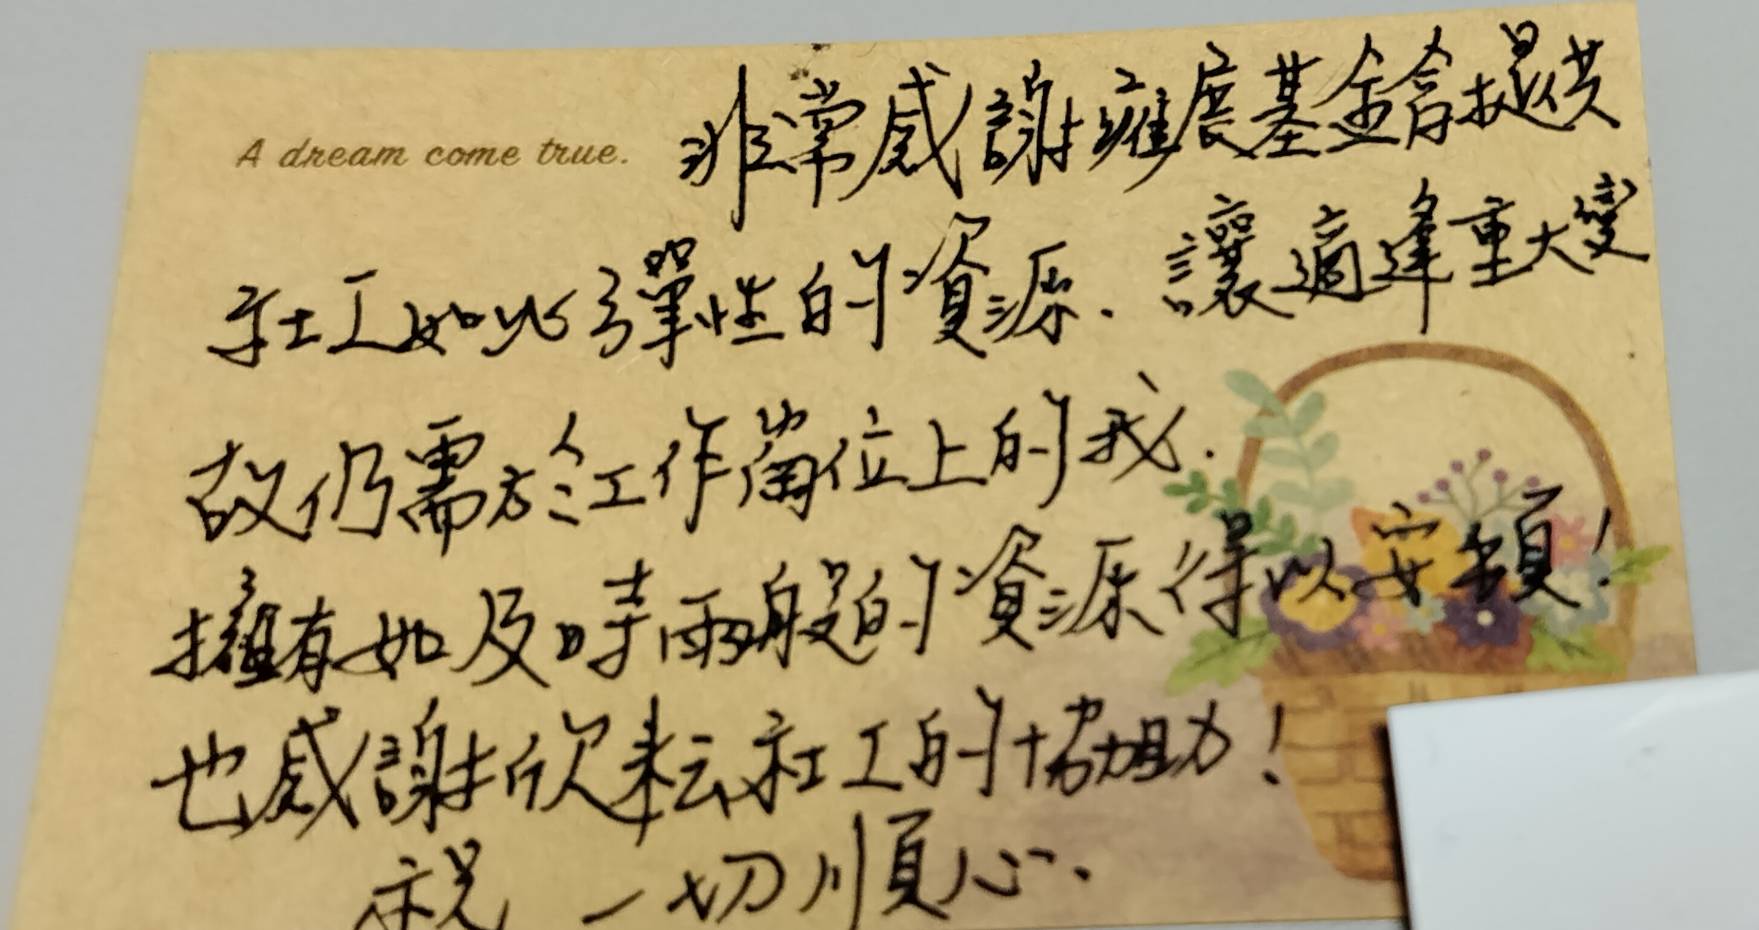 A dream come true.
非常感謝瘫展基金會提供
社工如此彈性的資源、讓適逢重大變
故仍需於工作崗位上的我.
擁有如及時雨般的資源得以安頓!
也感謝欣耘社工的協助!
祝 一切順心.